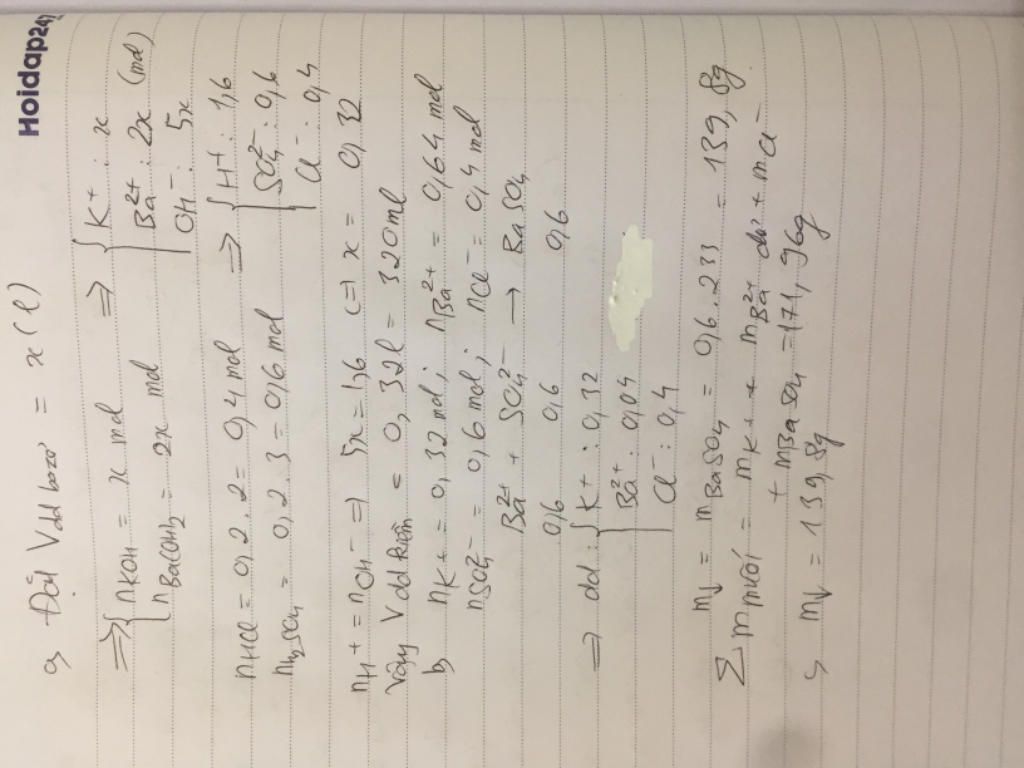 Hoidap247
a, Đặt Vdd bazơ = x (l)
=> { nKOH = x mol => { K+ : x
nBa(OH)2 = 2x mol Ba2+ : 2x (mol)
OH- : 5x
nHCl = 0,2 . 2 = 0,4 mol => { H+ : 1,6
nH2SO4 = 0,2 . 3 = 0,6 mol SO4 2- : 0,6
Cl- : 0,4
nH+ = nOH- => 5x = 1,6 (=) x = 0,32
Vậy Vdd kiềm = 0,32l = 320ml
b, nK+ = 0,32 mol ; nBa2+ = 0,64 mol
nSO4 2- = 0,6 mol ; nCl- = 0,4 mol
Ba2+ + SO4 2- → BaSO4
0,6 0,6 0,6
=> dd : { K+ : 0,32
Ba2+ : 0,04
Cl- : 0,4
m↓ = mBaSO4 = 0,6 . 233 = 139,8g
∑ m muối = mK+ + mBa2+ dư + mCl-
+ mBaSO4 = 171,96g
c, m↓ = 139,8g